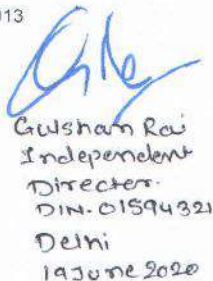 013
Gulshan Rai
Independent
Director.
DIN-01594321
Delhi
19 June 2020